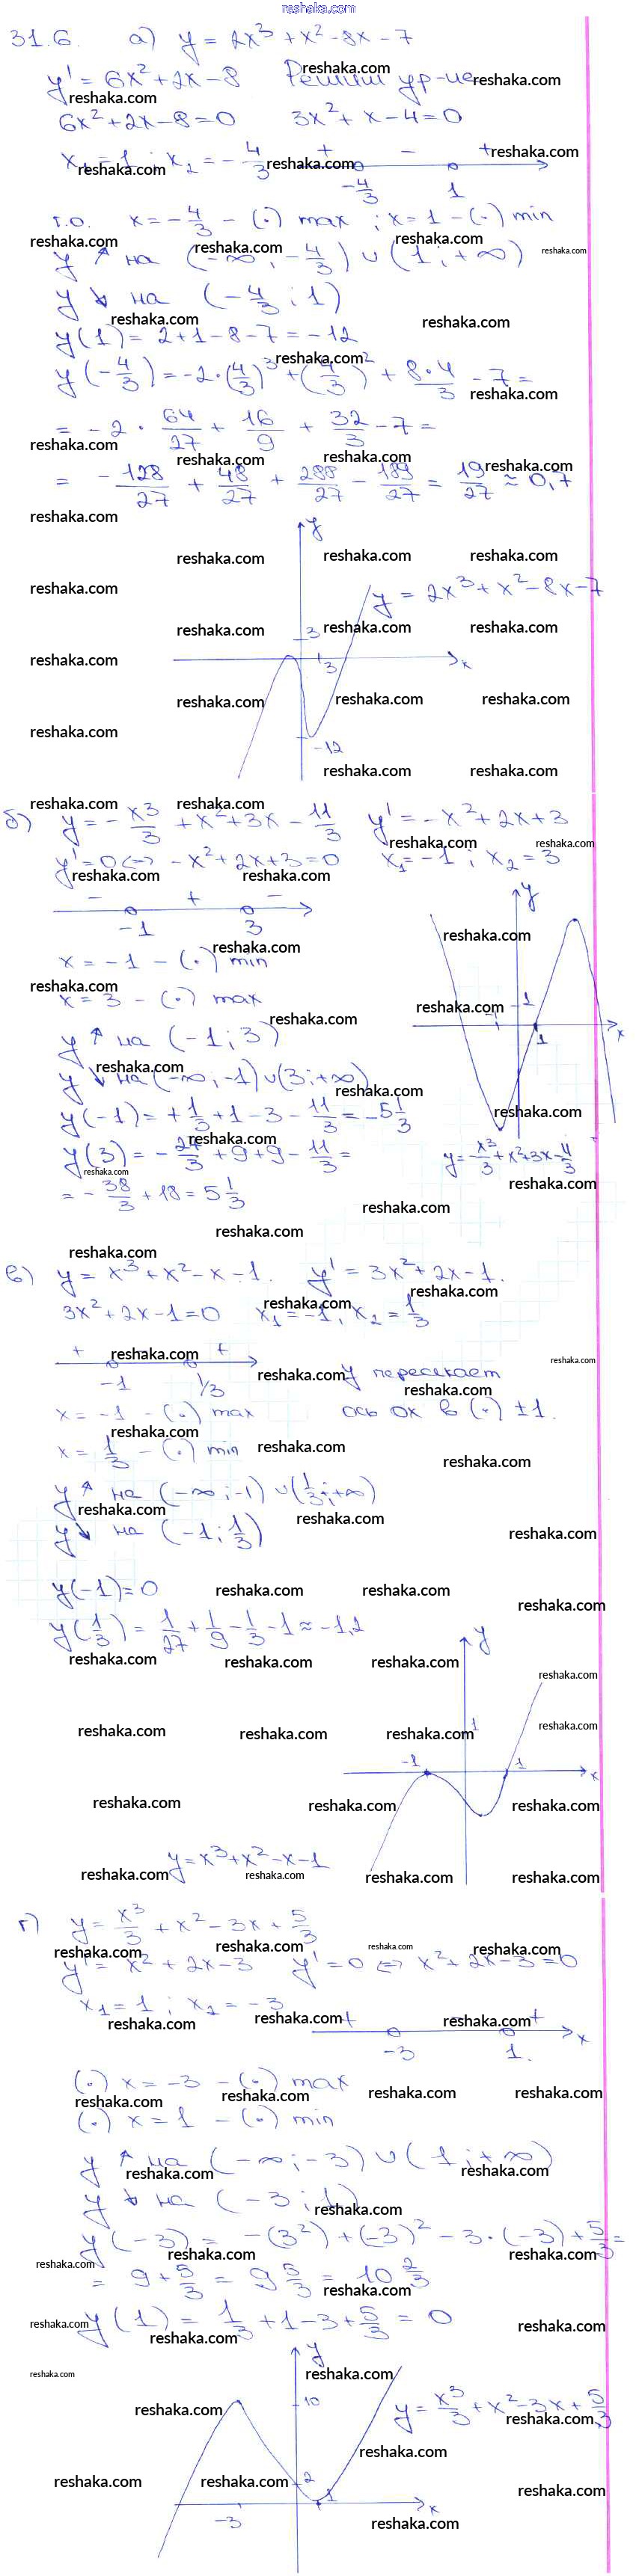 reshaka.com
31.6. а) y = 2x³ + x² - 8x - 7
y' = 6x² + 2x - 8 Решим ур-ие
6x² + 2x - 8 = 0 3x² + x - 4 = 0
x₁ = 1 ; x₂ = -4/3 + - +
-4/3 1
т.о. x = -4/3 - (·) max ; x = 1 - (·) min
y ↑ на (-∞; -4/3) ∪ (1; +∞)
y ↓ на (-4/3; 1)
y(1) = 2 + 1 - 8 - 7 = -12
y(-4/3) = -2·(4/3)³ + (4/3)² + 8·4/3 - 7 =
= -2 · 64/27 + 16/9 + 32/3 - 7 =
= -128/27 + 48/27 + 288/27 - 189/27 = 19/27 ≈ 0,7
y
y = 2x³ + x² - 8x - 7
3
3 x
-12
б) y = -x³/3 + x² + 3x - 11/3 y' = -x² + 2x + 3
y' = 0 <=> -x² + 2x + 3 = 0 x₁ = -1 ; x₂ = 3
- + -
-1 3
y
x = -1 - (·) min
x = 3 - (·) max
1
-1 1 x
y ↑ на (-1; 3)
y ↓ на (-∞; -1) ∪ (3; +∞)
y(-1) = +1/3 + 1 - 3 - 11/3 = -5 1/3
y(3) = -27/3 + 9 + 9 - 11/3 =
y = -x³/3 + x² + 3x - 11/3
= -38/3 + 18 = 5 1/3
в) y = x³ + x² - x - 1. y' = 3x² + 2x - 1.
3x² + 2x - 1 = 0 x₁ = -1, x₂ = 1/3
+ +
-1 1/3
y пересекает
x = -1 - (·) max ось ОХ в (·) ±1.
x = 1/3 - (·) min
y ↑ на (-∞; -1) ∪ (1/3; +∞)
y ↓ на (-1; 1/3)
y(-1) = 0
y(1/3) = 1/27 + 1/9 - 1/3 - 1 ≈ -1,2
y
1
-1 1 x
y = x³ + x² - x - 1
г) y = x³/3 + x² - 3x + 5/3
y' = x² + 2x - 3 y' = 0 <=> x² + 2x - 3 = 0
x₁ = 1 ; x₂ = -3
+ - + x
-3 1.
(·) x = -3 - (·) max
(·) x = 1 - (·) min
y ↑ на (-∞; -3) ∪ (1; +∞)
y ↓ на (-3; 1)
y(-3) = -(3²) + (-3)² - 3·(-3) + 5/3 =
= 9 + 5/3 = 9 5/3 = 10 2/3
y(1) = 1/3 + 1 - 3 + 5/3 = 0
y
10
y = x³/3 + x² - 3x + 5/3
2
-3 1 x